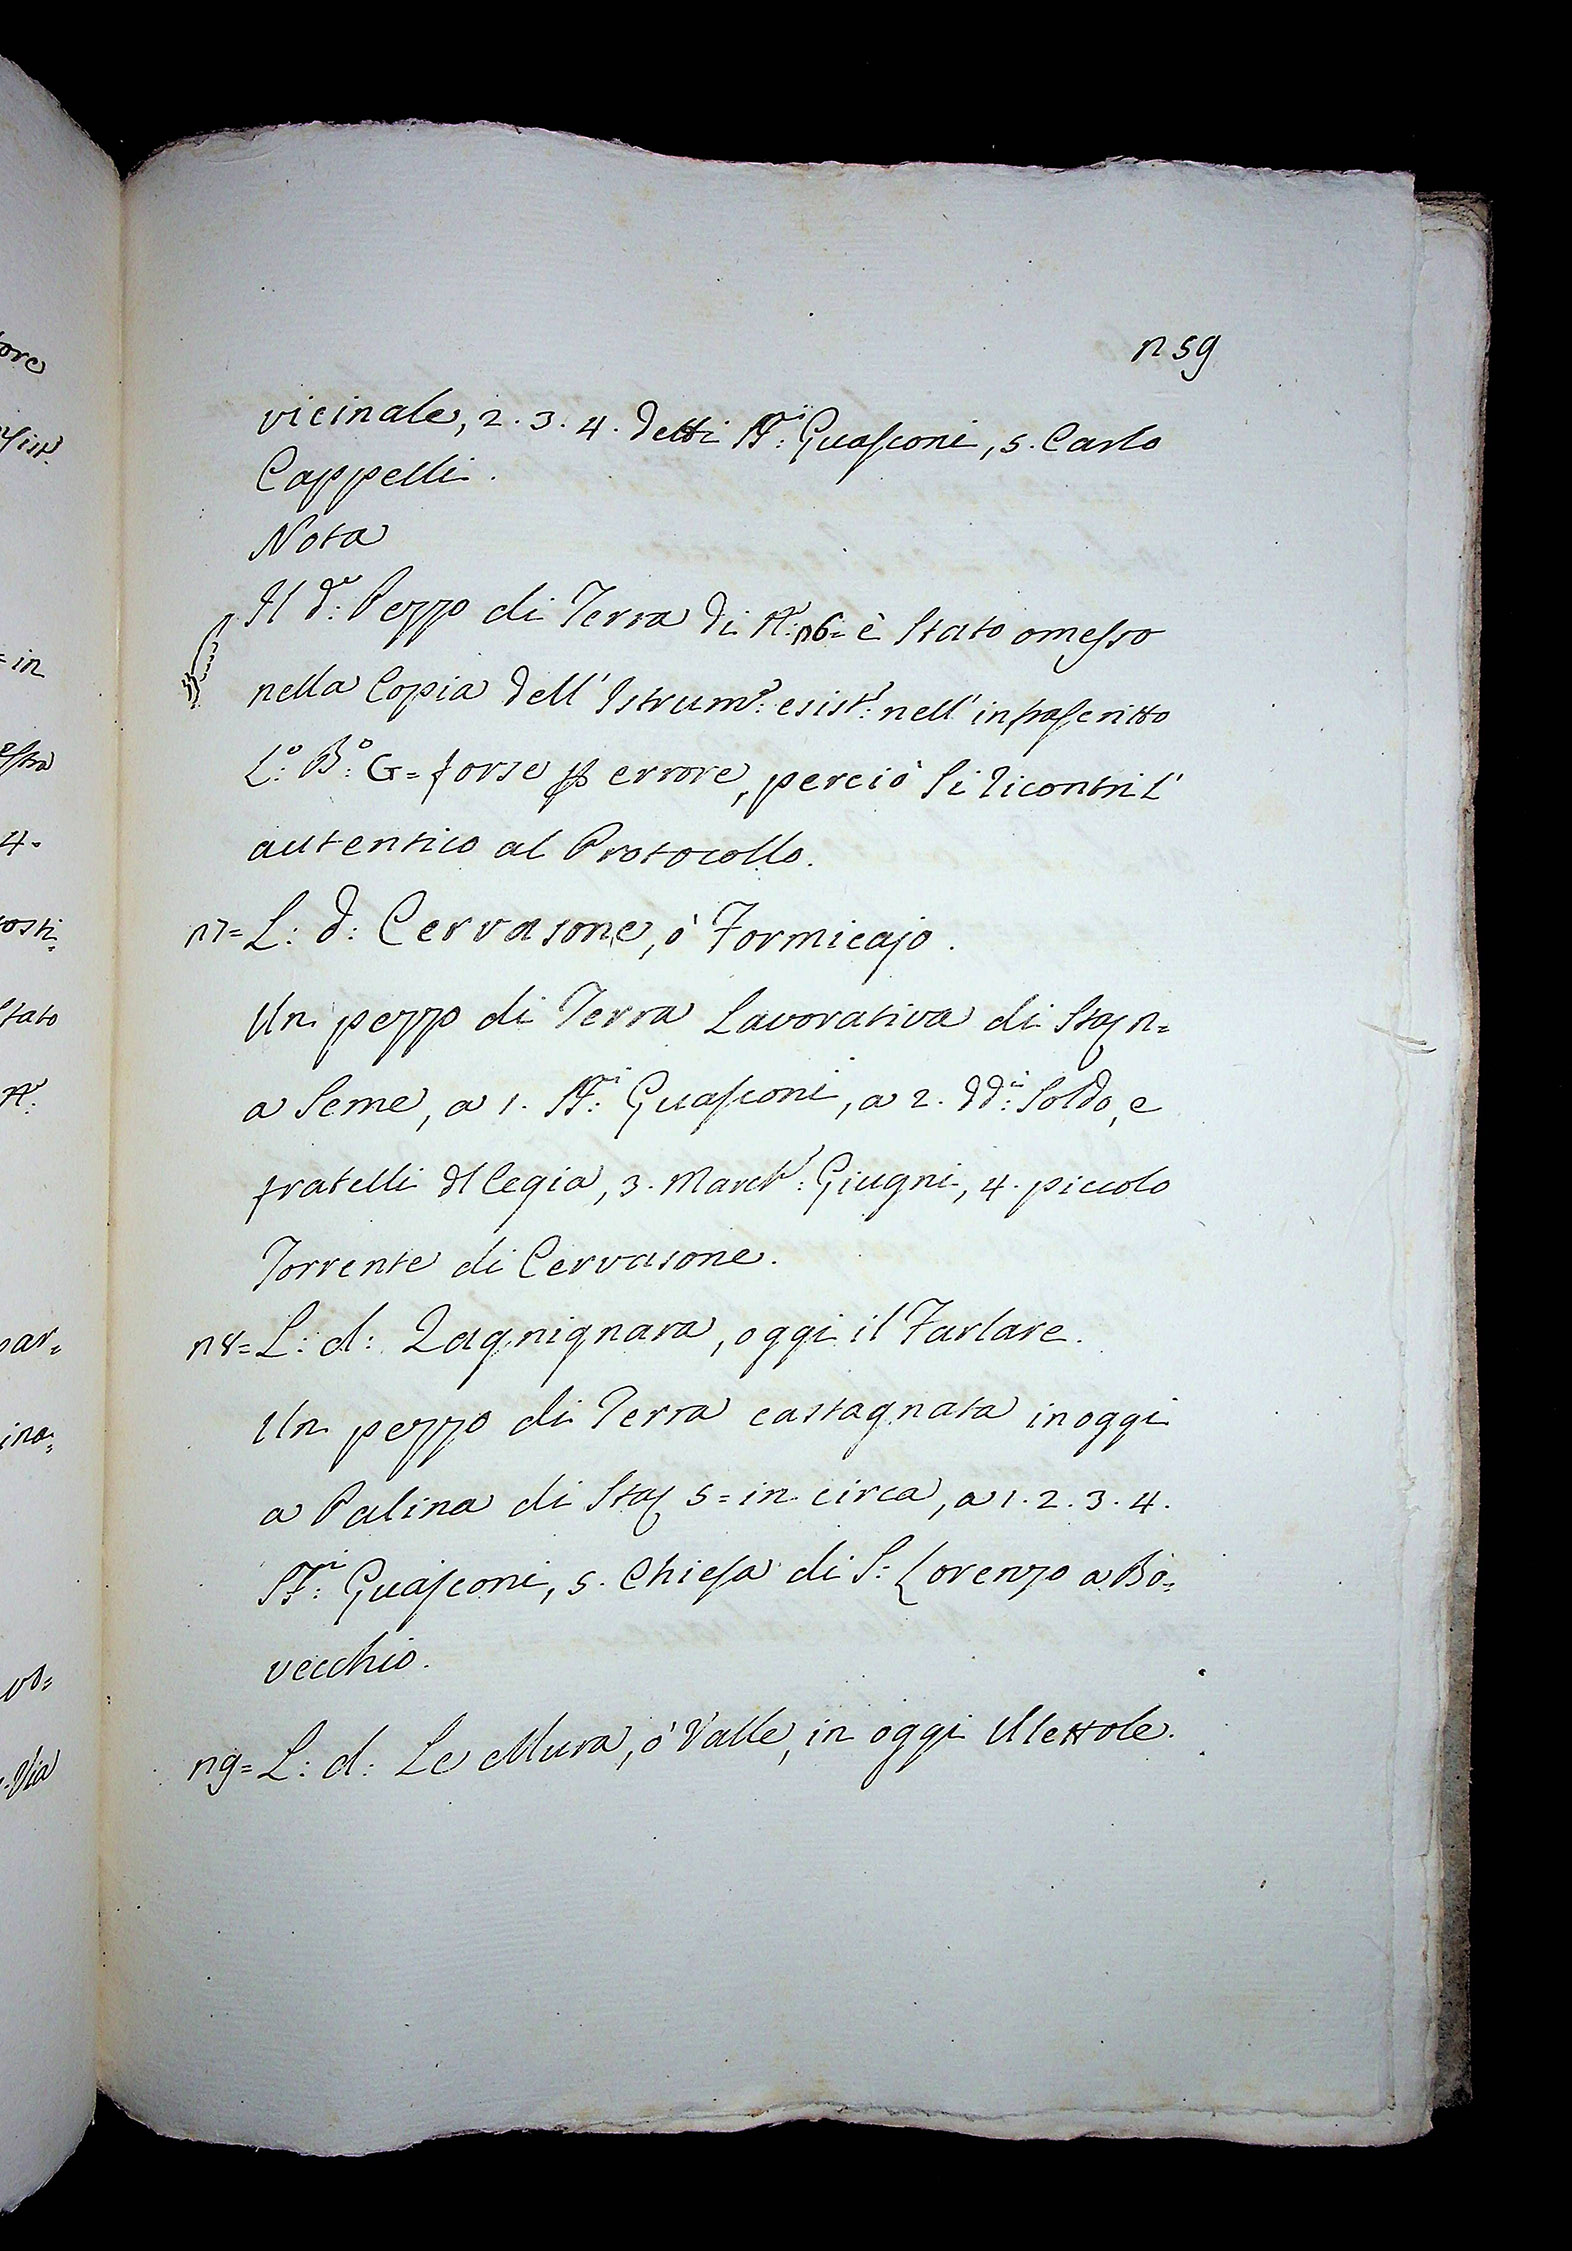 159
vicinale, 2. 3. 4. detti SS:ri Guasconi, 5. Carlo
Cappelli.
Nota
Il d:o Pezzo di Terra di N:o 16= è stato omesso
nella Copia dell'Istrum:o esist:e nell'infrascritto
L:o B:o G= forse p errore, perciò si riscontri l'
autentico al Protocollo.
17= L: d: Cervasone, ò Formicajo.
Un pezzo di Terra Lavorativa di Staj 1=
a seme, a 1. SS:ri Guasconi, a 2. dd:i Soldo, e
fratelli Cegia, 3. March:e Giugni, 4. piccolo
Torrente di Cervasone.
18= L: d: Lagnignara, oggi il Farlare.
Un pezzo di Terra castagnata in oggi
a Palina di Staj 5= in circa, a 1. 2. 3. 4.
SS:ri Guasconi, 5. Chiesa di S: Lorenzo a Bo=
vecchio.
19= L: d: Le Mura, ò Valle, in oggi Mettole.
ore
= in
4.
osti=
stato
N:o
par=
ina=
Via